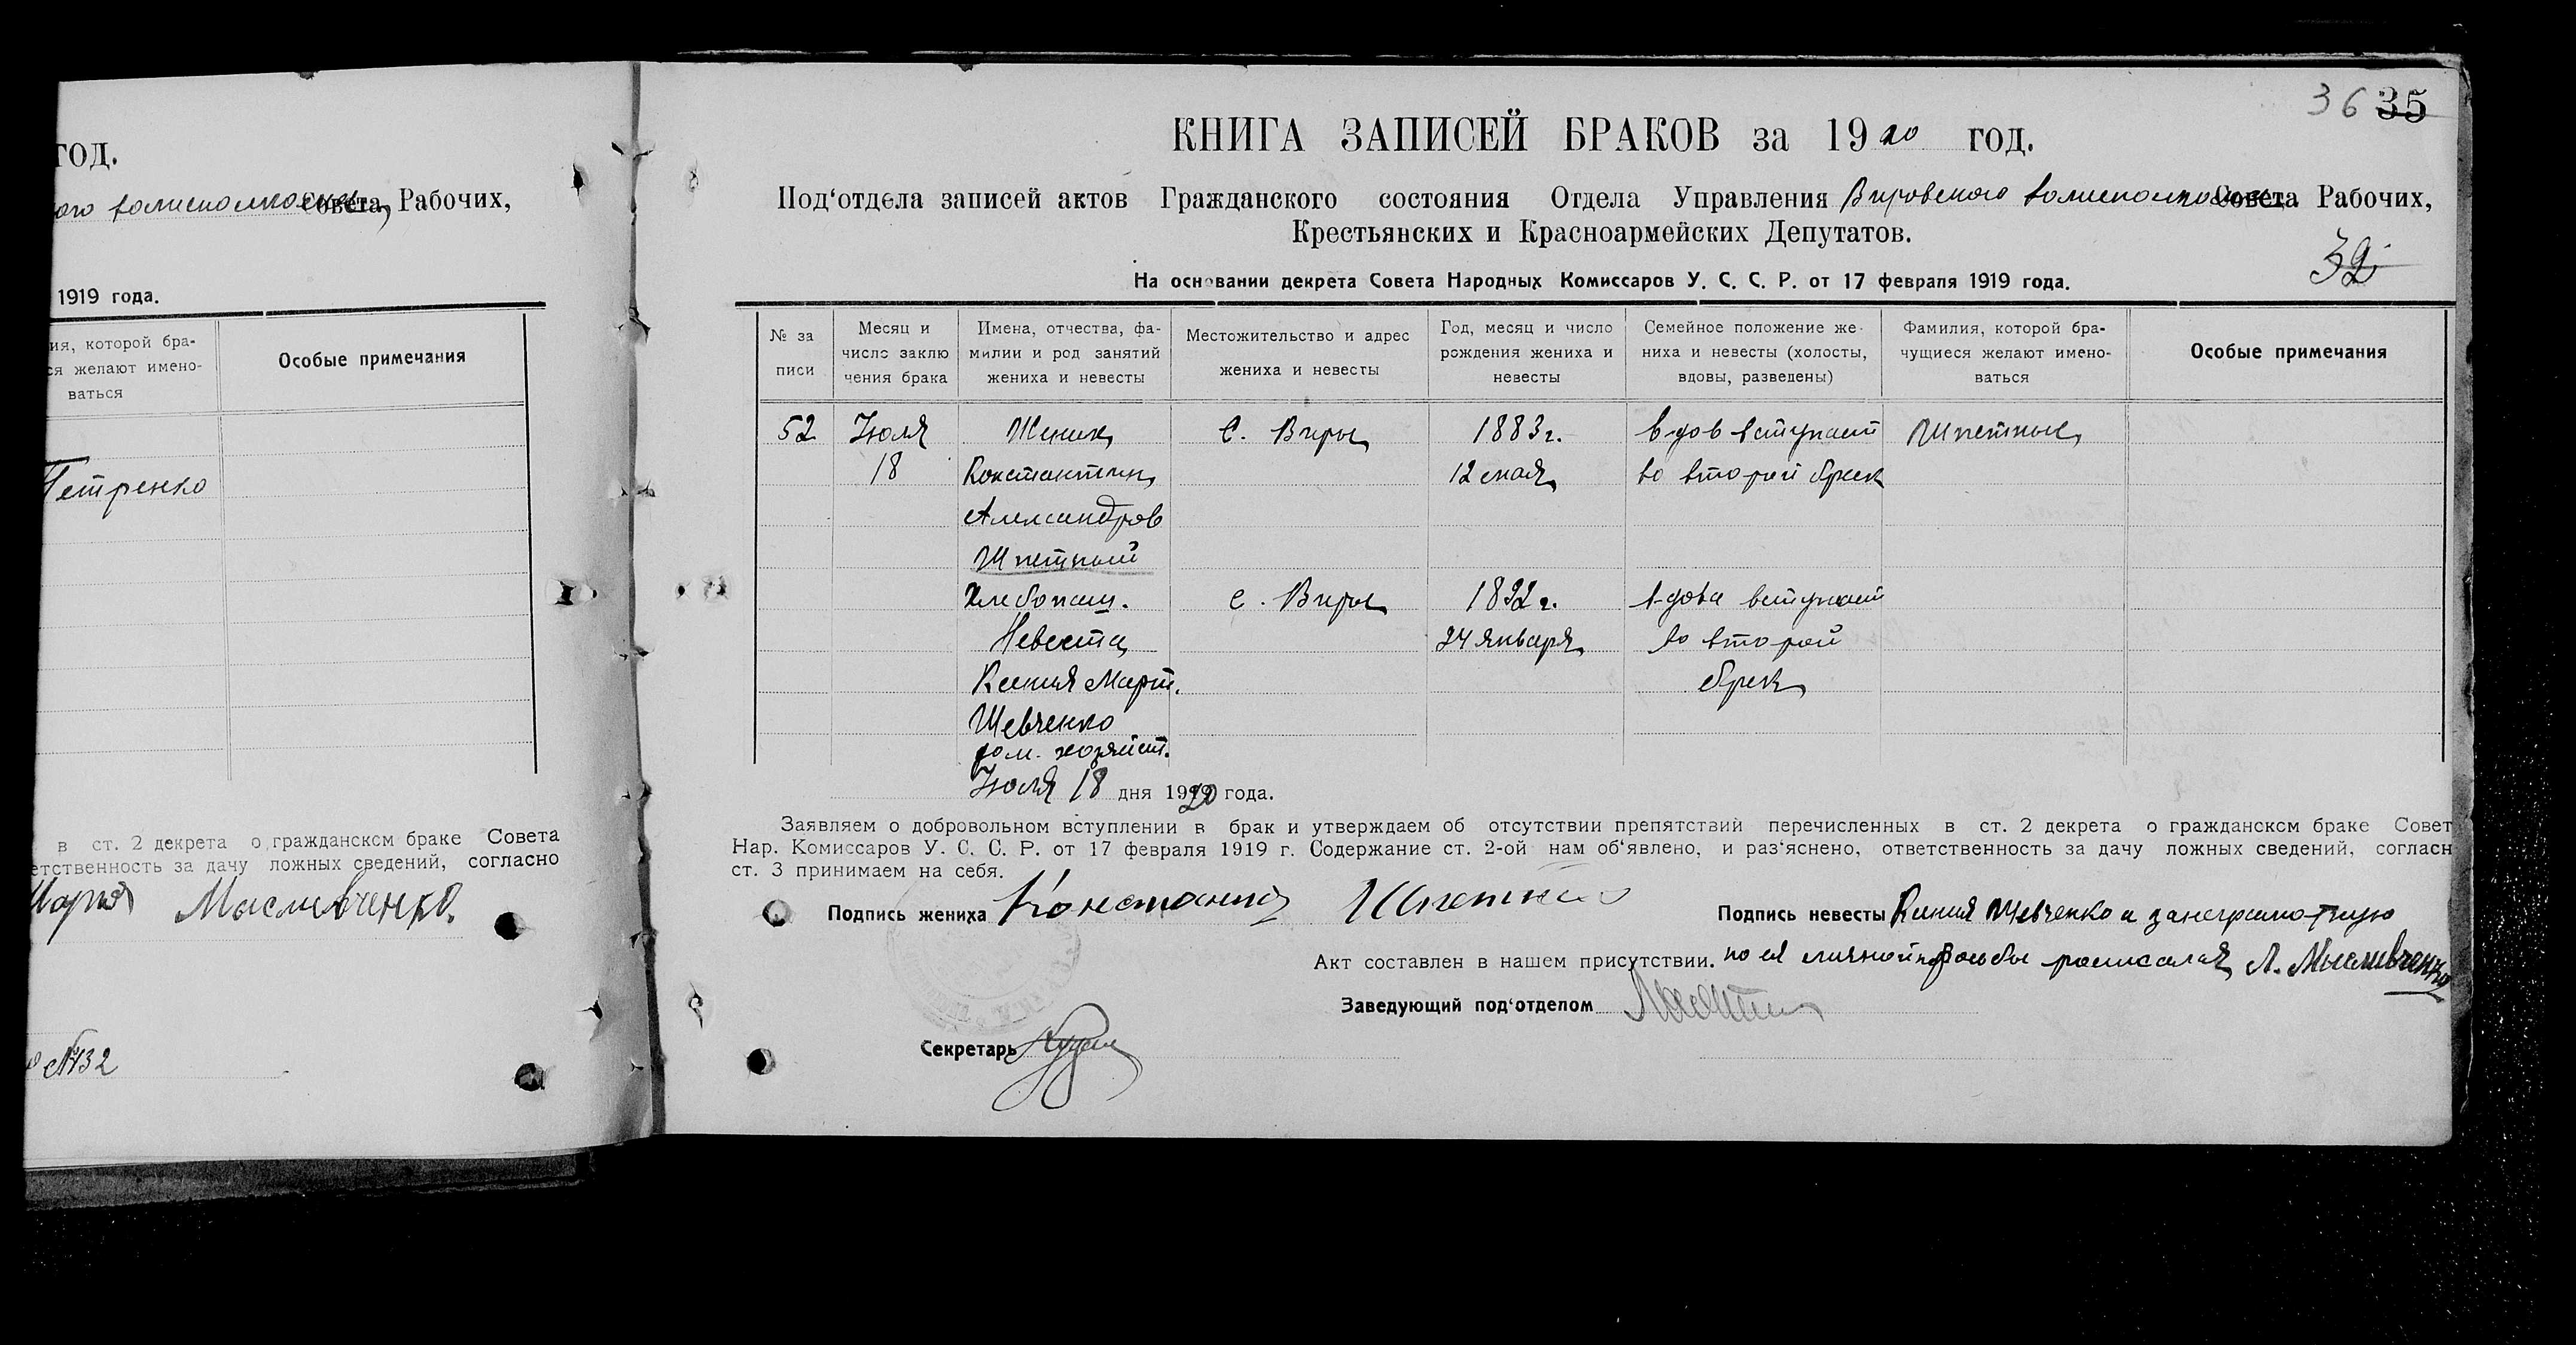 год.
Совета Рабочих,
1919 года.
ия, которой бра-
ся желают имено-
ваться
Особые примечания
Петренко
в ст. 2 декрета о гражданском браке Совета
етственность за дачу ложных сведений, согласно
Мария Мысливченко.
№32
36 35
КНИГА ЗАПИСЕЙ БРАКОВ за 1920 год.
Под‘отдела записей актов Гражданского состояния Отдела Управления Вировского волисполкома Совета Рабочих,
Крестьянских и Красноармейских Депутатов.
32
На основании декрета Совета Народных Комиссаров У. С. С. Р. от 17 февраля 1919 года.
№ за
писи
Месяц и
число заклю
чения брака
Имена, отчества, фа-
милии и род занятий
жениха и невесты
Местожительство и адрес
жениха и невесты
Год, месяц и число
рождения жениха и
невесты
Семейное положение же-
ниха и невесты (холосты,
вдовы, разведены)
Фамилия, которой бра-
чущиеся желают имено-
ваться
Особые примечания
52 Июля Жених с. Виры 1883 г. вдов вступает Шпетные
18 Константин 12 мая во второй брак
Александров
Шпетный
Хлебопаш. с. Виры 1892 г. вдова вступает
Невеста 24 января во второй
Ксения Март. брак
Шевченко
дом. хозяйст.
Июля 18 дня 1920 года.
Заявляем о добровольном вступлении в брак и утверждаем об отсутствии препятствий перечисленных в ст. 2 декрета о гражданском браке Совет
Нар. Комиссаров У. С. С. Р. от 17 февраля 1919 г. Содержание ст. 2-ой нам об‘явлено, и раз‘яснено, ответственность за дачу ложных сведений, согласн
ст. 3 принимаем на себя.
Подпись жениха Константин Подпись невесты Ксения Шевченко а за неграмотную
Акт составлен в нашем присутствии. по ея личной просьбы росписалея Л. Мысливченко
Заведующий под‘отделом
Секретарь